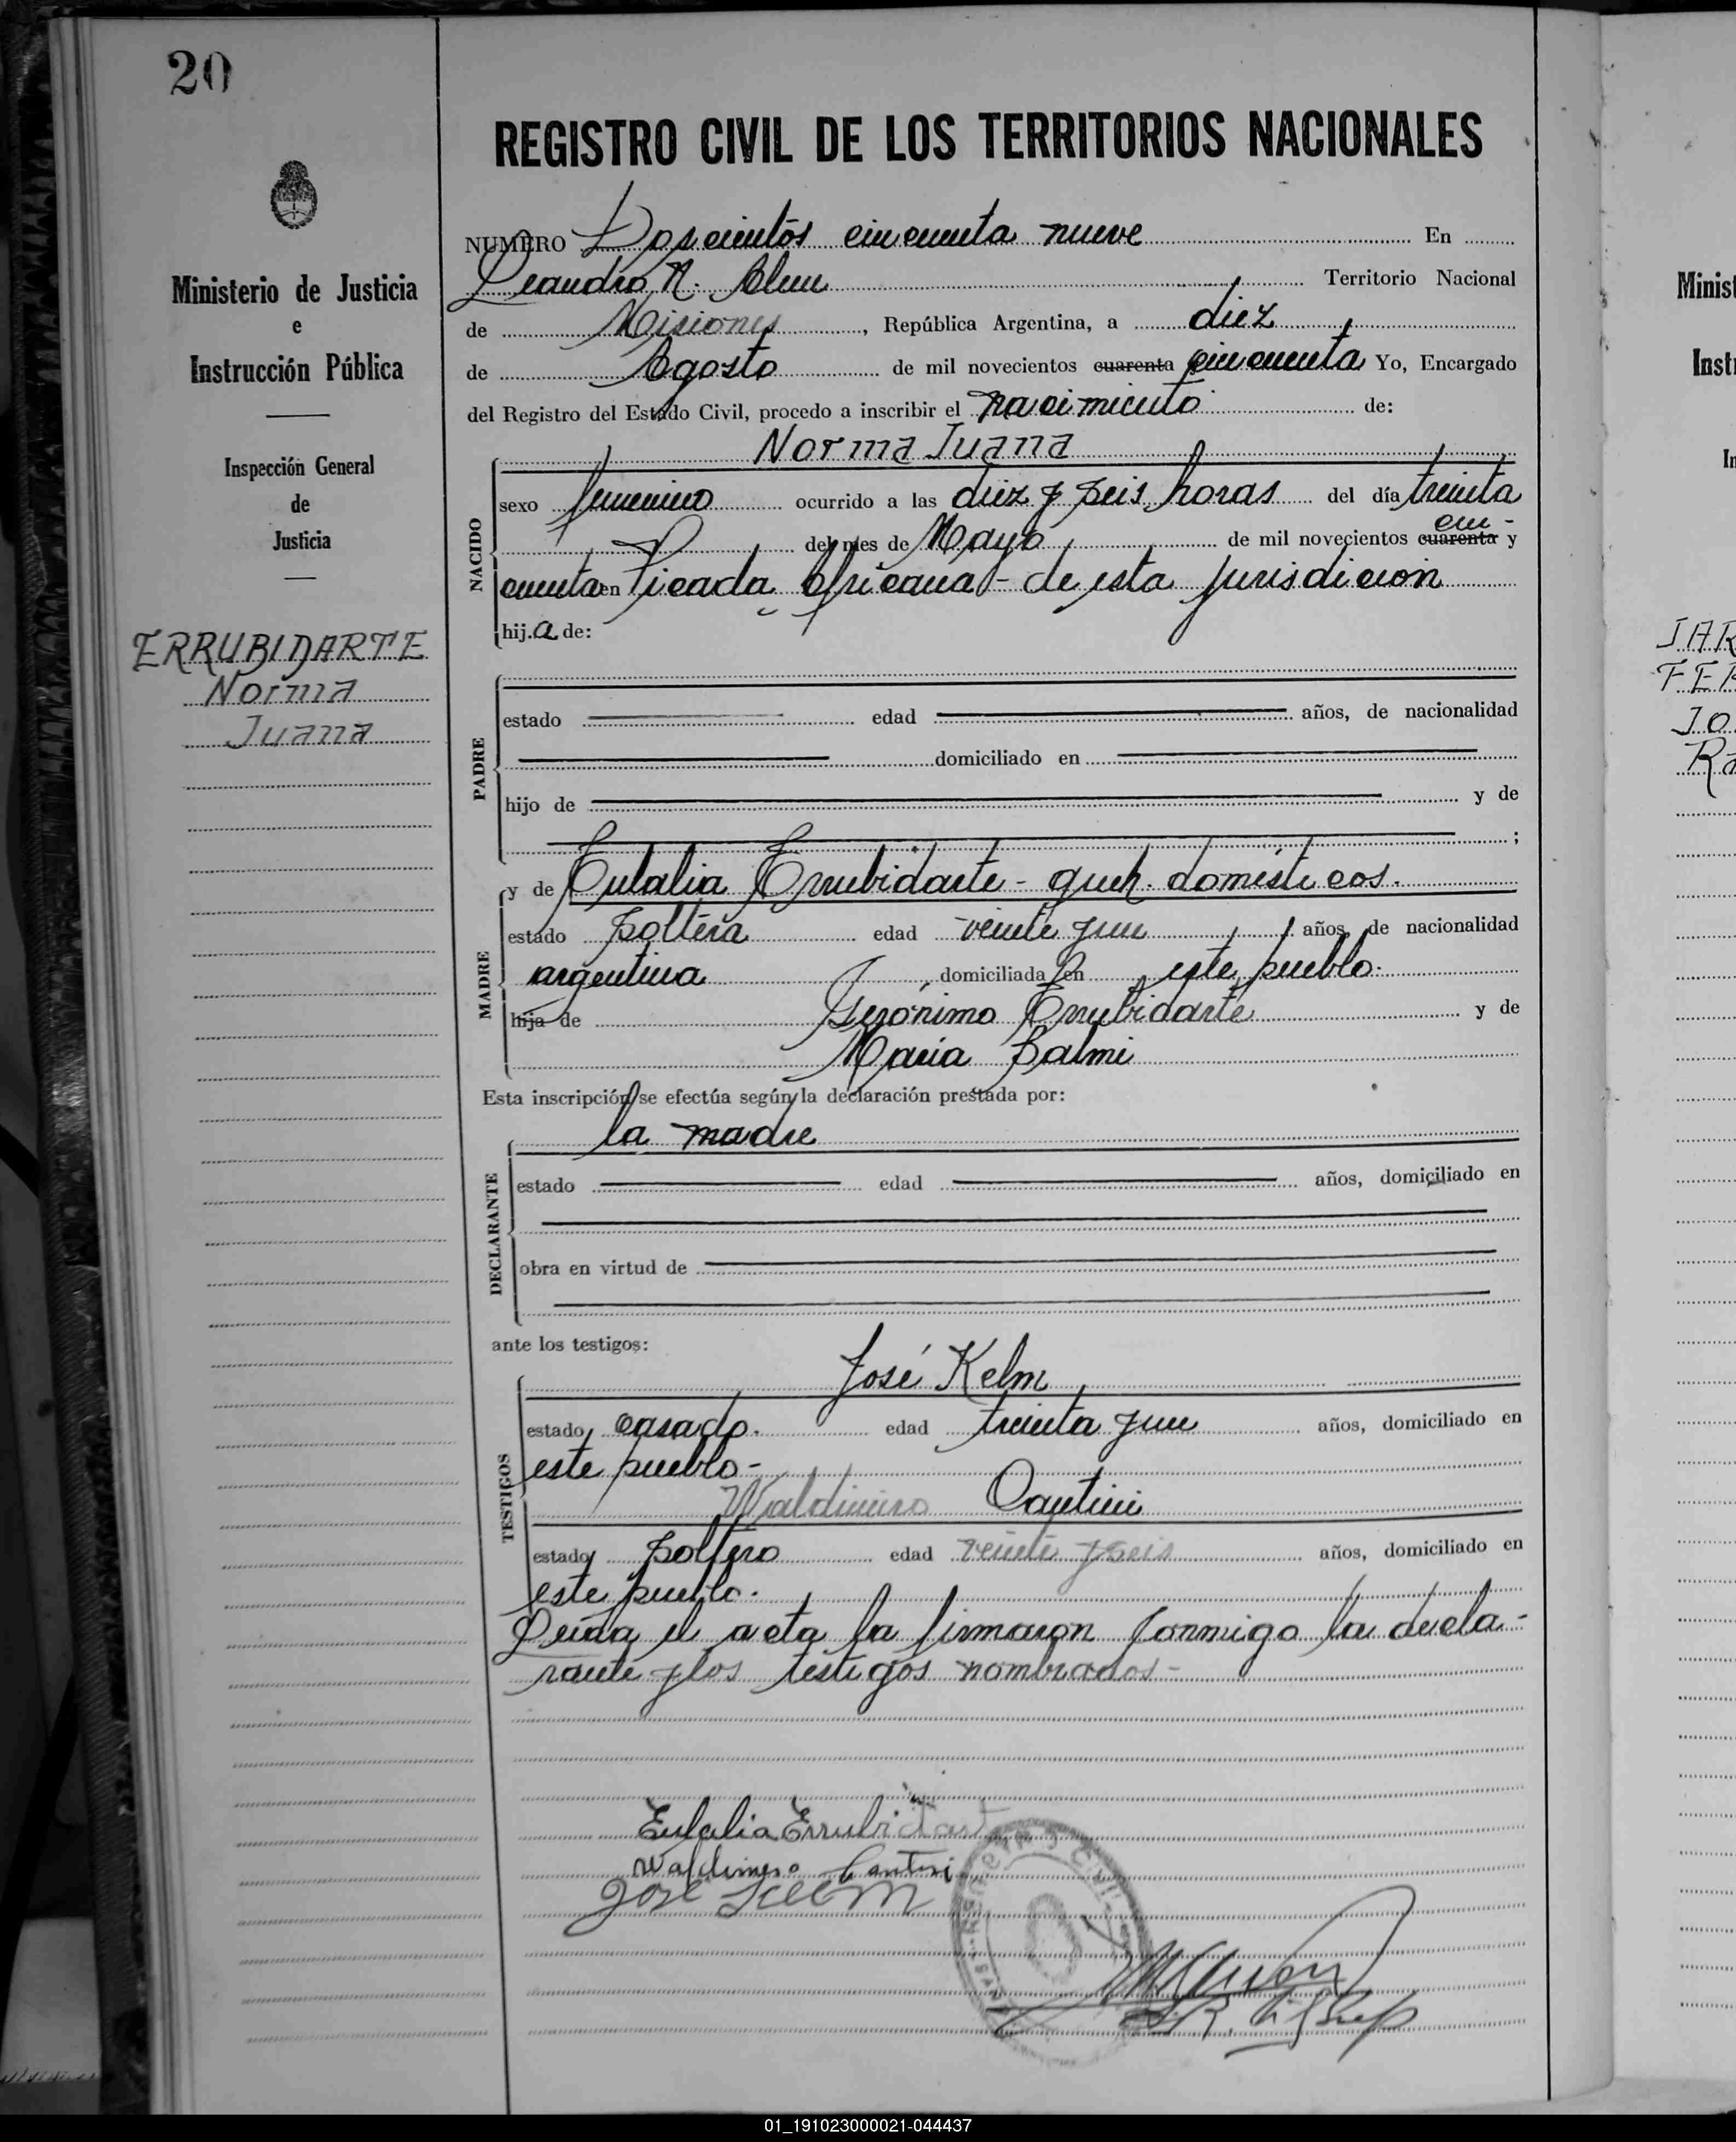 20
REGISTRO CIVIL DE LOS TERRITORIOS NACIONALES
Ministerio de Justicia
e
Instrucción Pública
Inspección General
de
Justicia
ERRUBIDARTE
Norma
Juana
NUMERO Doscientos cincuenta nueve En
Leandro N. Alem Territorio Nacional
de Misiones, República Argentina, a diez
de Agosto de mil novecientos cuarenta cincuenta Yo, Encargado
del Registro del Estado Civil, procedo a inscribir el nacimiento de:
Norma Juana
NACIDO
sexo femenino ocurrido a las diez y seis horas del día treinta
del mes de Mayo de mil novecientos cuarenta y cin-
cuenta en Picada Africana - de esta jurisdicion
hij.a de:
PADRE
estado edad años, de nacionalidad
domiciliado en
hijo de y de
;
MADRE
y de Eulalia Errubidarte - queh. domésticos.
estado soltera edad veinte y un años, de nacionalidad
argentina, domiciliada en este pueblo.
hija de Gerónimo Errubidarte y de
María Balmi
Esta inscripción se efectúa según la declaración prestada por:
la madre
DECLARANTE
estado edad años, domiciliado en
obra en virtud de
ante los testigos:
TESTIGOS
José Kelm
estado casado. edad treinta y un años, domiciliado en
este pueblo -
Waldimiro Cantini
estado soltero edad veinte y seis años, domiciliado en
este pueblo.
Leida el acta la firmaron conmigo la decla-
rante y los testigos nombrados -
Eulalia Errubidart
Waldimero Cantini
José
Minist
Instr
In
JAR
FER
JO
Ra
01_191023000021-044437